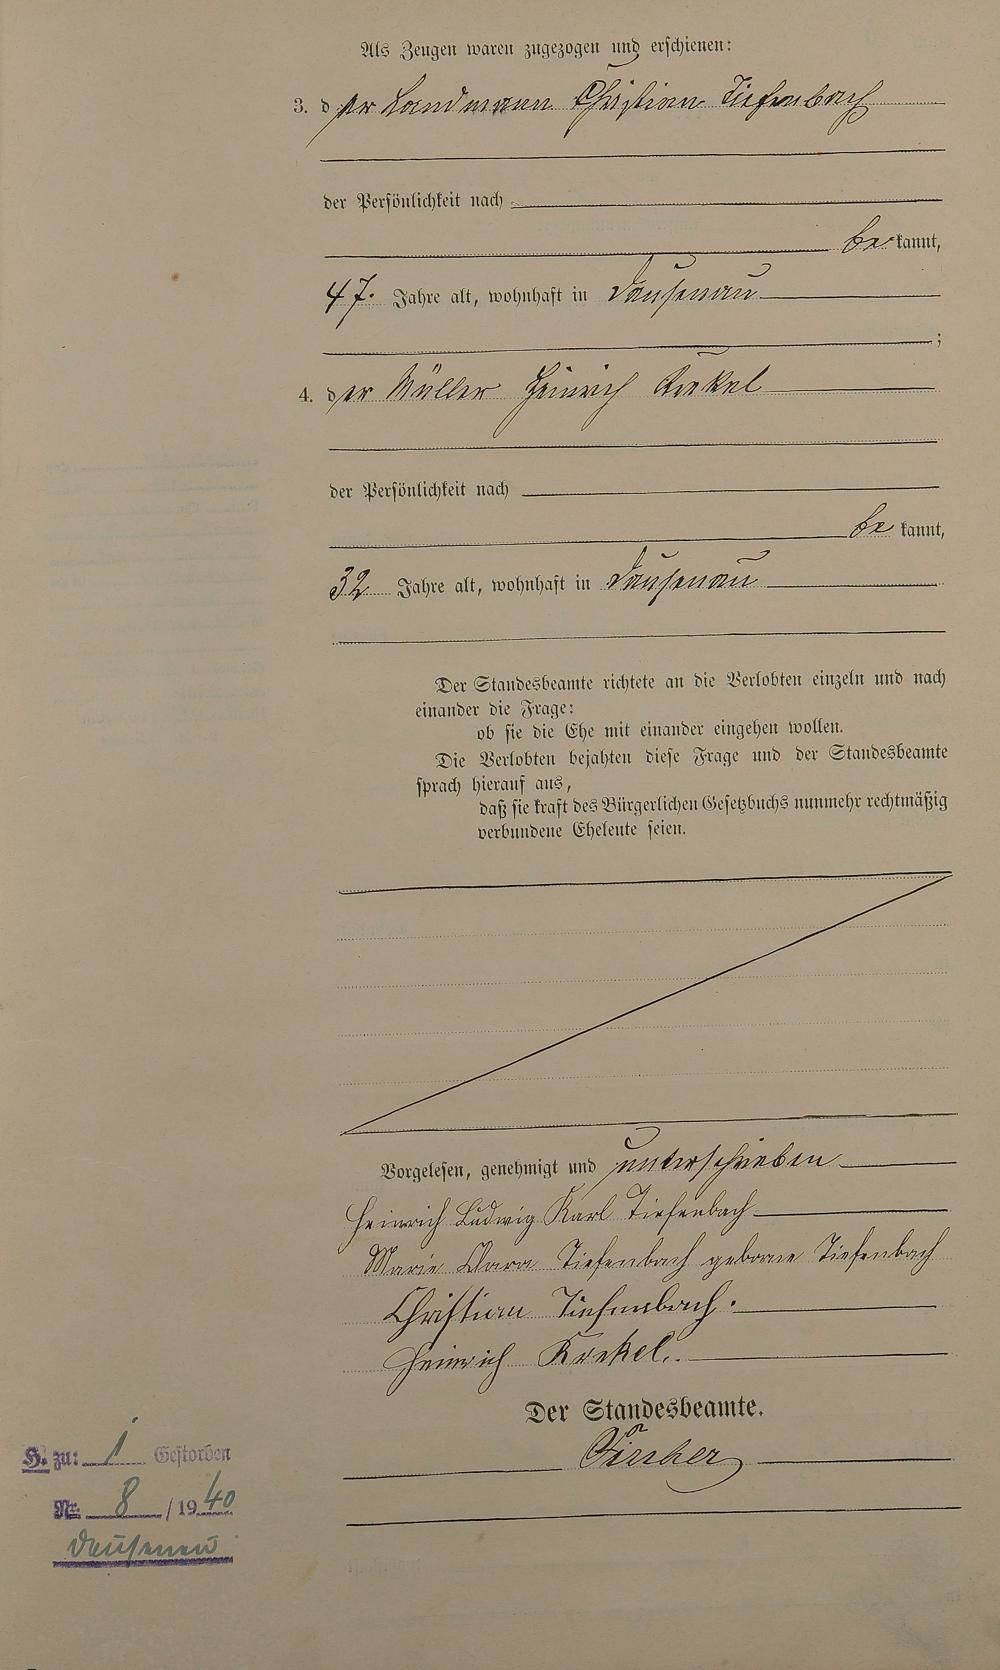 Als Zeugen waren zugezogen und erschienen:
3. der Landmann Christian Tiefenbach
der Persönlichkeit nach
bekannt,
47. Jahre alt, wohnhaft in Dausenau
;
4. der Müller Heinrich Krekel
der Persönlichkeit nach
be kannt,
32 Jahre alt, wohnhaft in Dausenau
Der Standesbeamte richtete an die Verlobten einzeln und nach
einander die Frage:
ob sie die Ehe mit einander eingehen wollen.
Die Verlobten bejahten diese Frage und der Standesbeamte
sprach hierauf aus,
daß sie kraft des Bürgerlichen Gesetzbuchs nunmehr rechtmäßig
verbundene Eheleute seien.
Vorgelesen, genehmigt und unterschrieben
Heinrich Ludwig Karl Tiefenbach
Marie Clara Tiefenbach geborne Tiefenbach
Christian Tiefenbach.
Heinrich Krekel.
Der Standesbeamte.
H. zu: 1 Gestorben
Nr. 8 / 1940
Dausenau